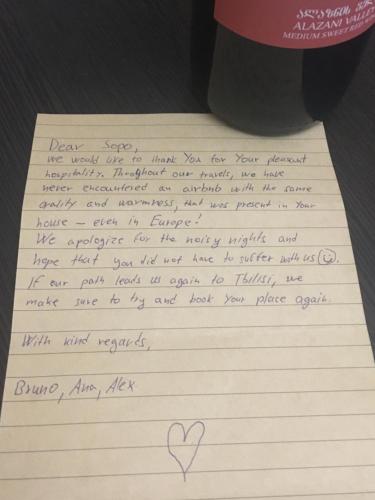 ალაზნის ველი
ALAZANI VALLEY
MEDIUM SWEET RED WINE
Dear Sopo,
we would like to thank You for Your pleasant
hospitality. Throughout our travels, we have
never encountered an airbnb with the same
qality and warmness, that was present in Your
house – even in Europe!
We apologize for the noisy nights and
hope that you did not have to suffer with us ☺.
If our path leads us again to Tbilisi, we
make sure to try and book Your place again.
With kind regards,
Bruno, Ana, Alex